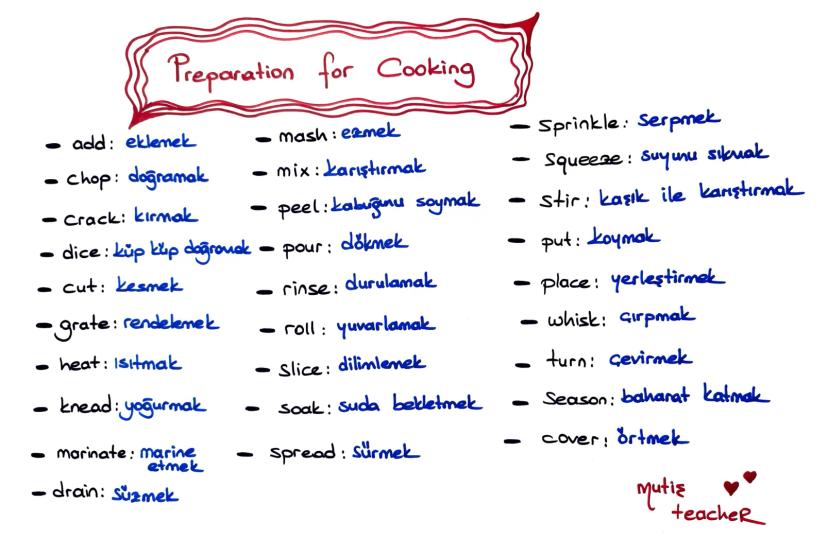 Preparation for Cooking
- add: eklemek
- chop: doğramak
- crack: kırmak
- dice: küp küp doğramak
- cut: kesmek
- grate: rendelemek
- heat: ısıtmak
- knead: yoğurmak
- marinate: marine
etmek
- drain: süzmek
- mash: ezmek
- mix: karıştırmak
- peel: kabuğunu soymak
- pour: dökmek
- rinse: durulamak
- roll: yuvarlamak
- slice: dilimlemek
- soak: suda bekletmek
- spread: sürmek
- Sprinkle: serpmek
- Squeeze: suyunu sıkmak
- Stir: kaşık ile karıştırmak
- put: koymak
- place: yerleştirmek
- whisk: çırpmak
- turn: çevirmek
- Season: baharat katmak
- cover: örtmek
mutiş
teacheR